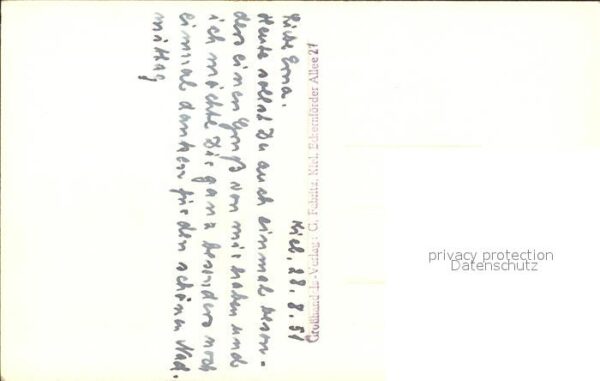 Kiel, 28.8.51
Liebe Erna.
Heute sollst Du auch einmal beson-
ders einen Gruß von mir haben und
ich möchte Dir ganz besonders noch
einmal danken für den schönen Nach-
mittag
Großhandels-Verlag: G. Fabritz, Kiel, Eckernförder Allee 27
privacy protection
Datenschutz